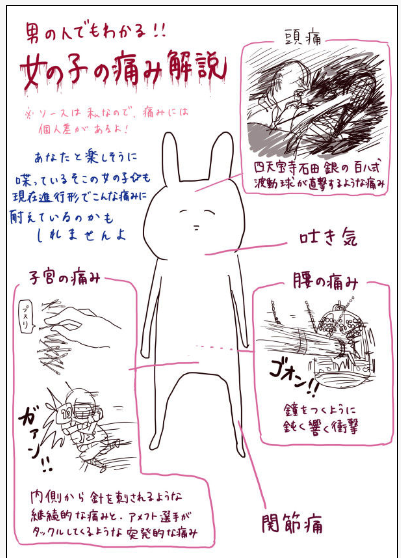 男の人でもわかる!!
女の子の痛み解説
※ソースは私なので、痛みには
個人差があるよ!
あなたと楽しそうに
喋っているそこの女の子も
現在進行形でこんな痛みに
耐えているのかも
しれませんよ
頭痛
四天宝寺石田銀の百八式
波動球が直撃するような痛み
吐き気
子宮の痛み
プスリ
ガァン!!
内側から針を刺されるような
継続的な痛みと、アメフト選手が
タックルしてくるような突発的な痛み
腰の痛み
ゴオン!!
鐘をつくように
鈍く響く衝撃
関節痛